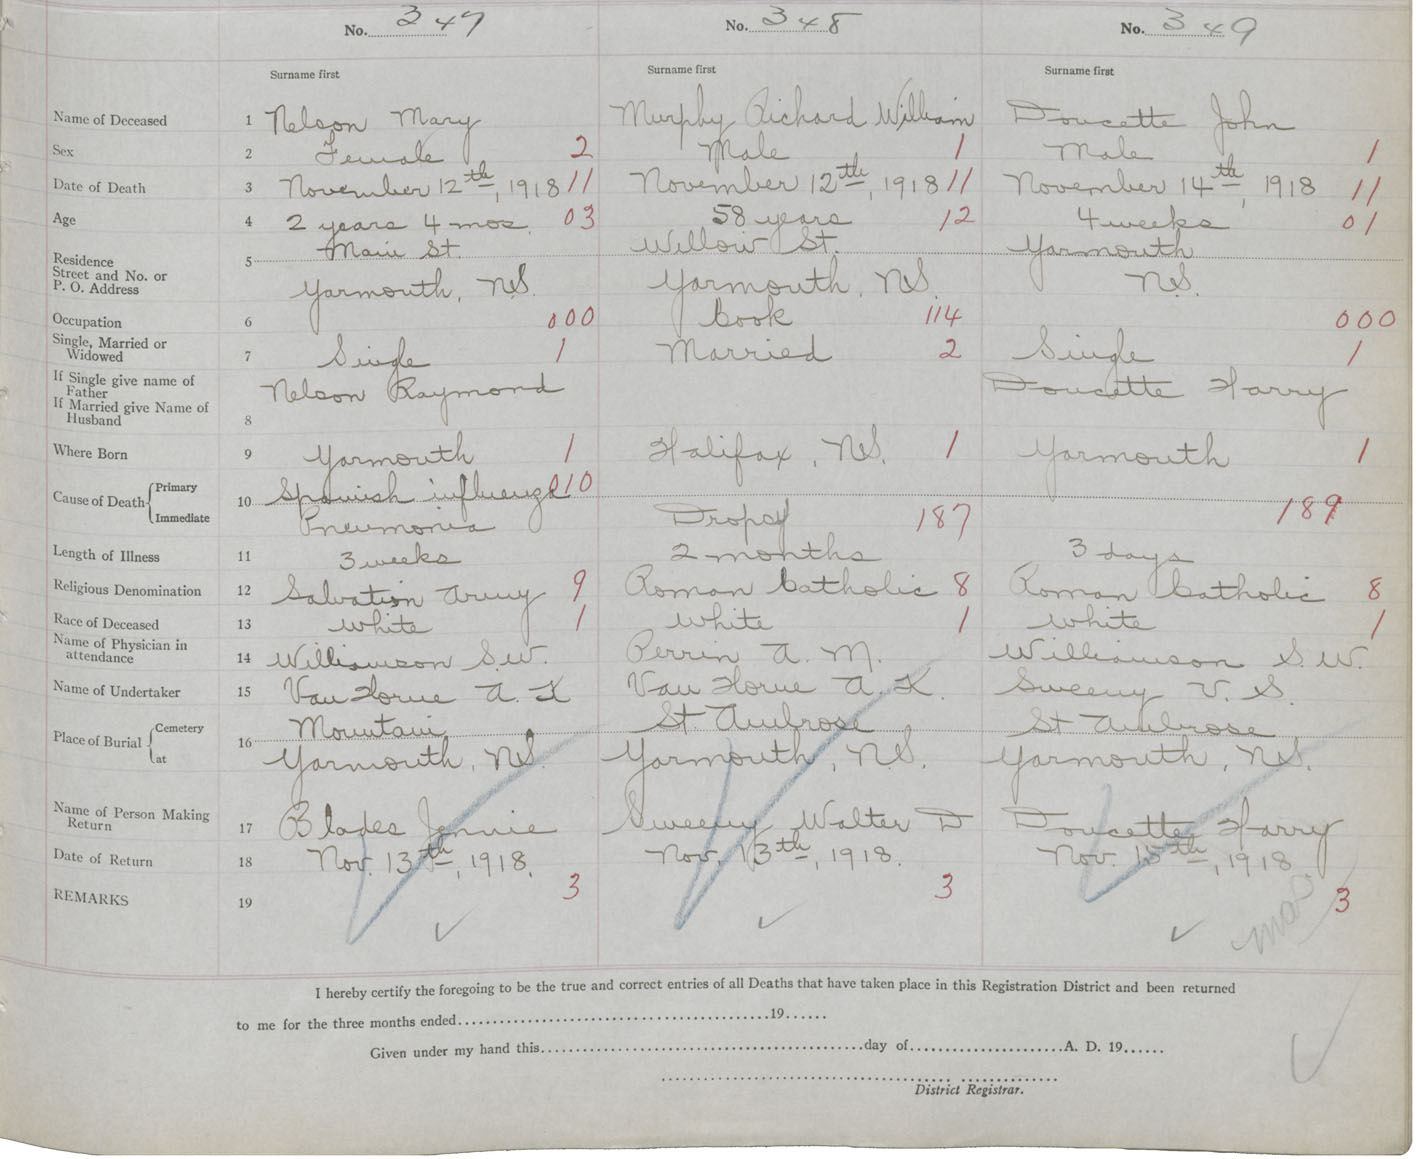 No. 347 No. 348 No. 349
Surname first Surname first Surname first
Name of Deceased 1 Nelson Mary Murphy Richard William Doucette John
Sex 2 Female 2 Male 1 Male 1
Date of Death 3 November 12th, 1918 11 November 12th, 1918 11 November 14th, 1918 11
Age 4 2 years 4 mos. 03 58 years 12 4 weeks 01
Residence 5 Main St. Willow St. Yarmouth
Street and No. or
P. O. Address Yarmouth, N.S. Yarmouth, N.S. N.S.
Occupation 6 000 Cook 114 000
Single, Married or
Widowed 7 Single 1 Married 2 Single 1
If Single give name of
Father Nelson Raymond Doucette Harry
If Married give Name of
Husband 8
Where Born 9 Yarmouth 1 Halifax, N.S. 1 Yarmouth 1
Cause of Death Primary 10 Spanish influenza 010
Immediate Pneumonia Dropsy 187 189
Length of Illness 11 3 weeks 2 months 3 days
Religious Denomination 12 Salvation Army 9 Roman Catholic 8 Roman Catholic 8
Race of Deceased 13 White 1 White 1 White 1
Name of Physician in
attendance 14 Williamson S.W. Perrin A. M. Williamson S.W.
Name of Undertaker 15 Van Horne A. K Van Horne A. K. Sweeny V. S.
Place of Burial Cemetery 16 Mountain St Ambrose St Ambrose
at Yarmouth, N.S. Yarmouth, N.S. Yarmouth, N.S.
Name of Person Making
Return 17 Blades Jennie Sweeny Walter D Doucette Harry
Date of Return 18 Nov. 13th, 1918. Nov. 13th, 1918. Nov. 15th, 1918.
REMARKS 19 3 3 3
I hereby certify the foregoing to be the true and correct entries of all Deaths that have taken place in this Registration District and been returned
to me for the three months ended 19
Given under my hand this day of A. D. 19
District Registrar.